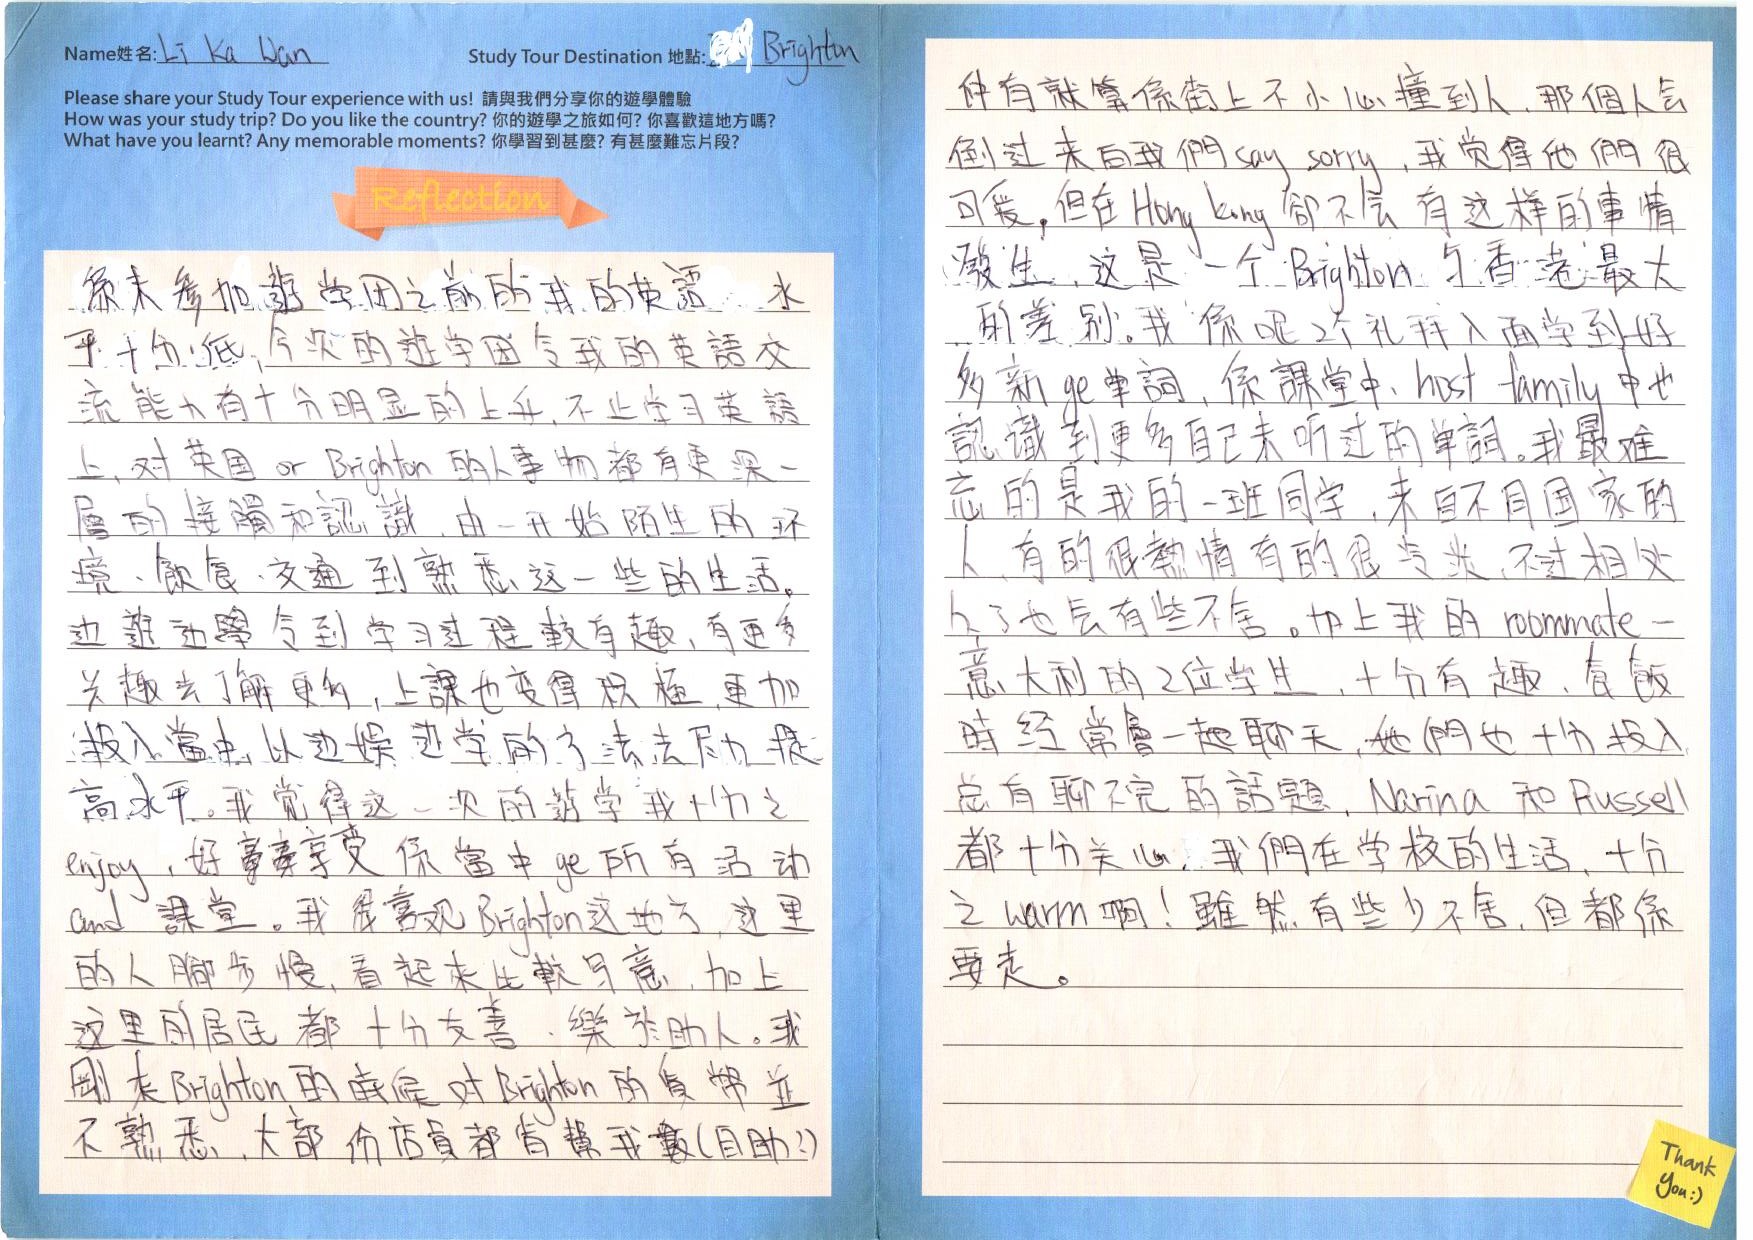 Name姓名: Li Ka Wan
Study Tour Destination 地點: Brighton
Please share your Study Tour experience with us! 請與我們分享你的遊學體驗
How was your study trip? Do you like the country? 你的遊學之旅如何? 你喜歡這地方嗎?
What have you learnt? Any memorable moments? 你學習到甚麼? 有甚麼難忘片段?
Reflection
係未參加遊学团之前的我的英語 水
平十分低,今次的遊学团令我的英語交
流能力有十分明显的上升,不止学习英語
上,对英国 or Brighton 的人事物都有更深一
層的接觸和認識,由一开始陌生的环
境、飲食、交通到熟悉这一些的生活。
边遊边學令到学习过程較有趣,有更多
兴趣去了解更多,上課也变得积極,更加
投入當中,以边娱边学的方法去尽力提
高水平。我觉得这一次的遊学我十分之
enjoy,好享受係當中ge所有活动
and 課堂。我很喜欢Brighton这地方,这里
的人腳步慢,看起來比較写意,加上
这里的居民都十分友善、樂於助人。我
剛來Brighton的時候对Brighton的貨幣並
不熟悉,大部份店員都肯幫我數(自助?)
仲有就算係街上不小心撞到人,那個人会
倒过来向我們say sorry,我觉得他們很
可爱。但在Hong kong卻不会有这样的事情
發生,这是一个Brighton与香港最大
的差别。我係呢2个礼拜入面学到好
多新ge单詞,係課堂中、host family中也
認識到更多自己未听过的单詞。我最难
忘的是我的一班同学,来自不同国家的
人,有的很熱情有的很冷淡,不过相处
久了也会有些不舍。加上我的roommate一
意大利的2位学生,十分有趣,食飯
時经常會一起聊天,她們也十分投入
总有聊不完的話題,Narina和Russell
都十分关心我們在学校的生活,十分
之warm啊!雖然有些少不舍,但都係
要走。
Thank
You:)